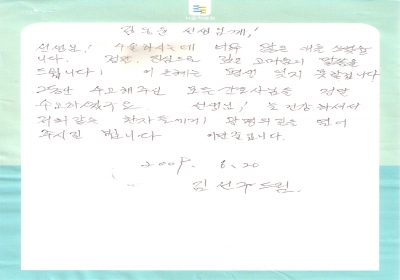 선생님께!
선생님! 수술하시는데 너무 많은
니다. 정말, 진심으로 깊은 고마움의 말씀을
드립니다! 이 은혜는 평생 잊지 못할겁니다
그동안 수고해주신 모든 간호사님들 정말
수고하셨구요. 선생님! 늘 건강하셔서
저희같은 환자들에게 광명의 빛을 띄어
주시길 빕니다 이만 줄입니다.
2009. 8. 20
김선구 드림.